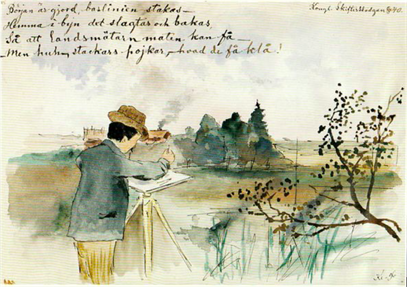 Början är gjord, baslinien stakas –
Hemma i byn det slagtas och bakas,
Så att Landsmätarn maten kan få –
Men huhu, stackars pojkar, – hvad de få klå!
Kongl. Skiftesstadgan § 90.